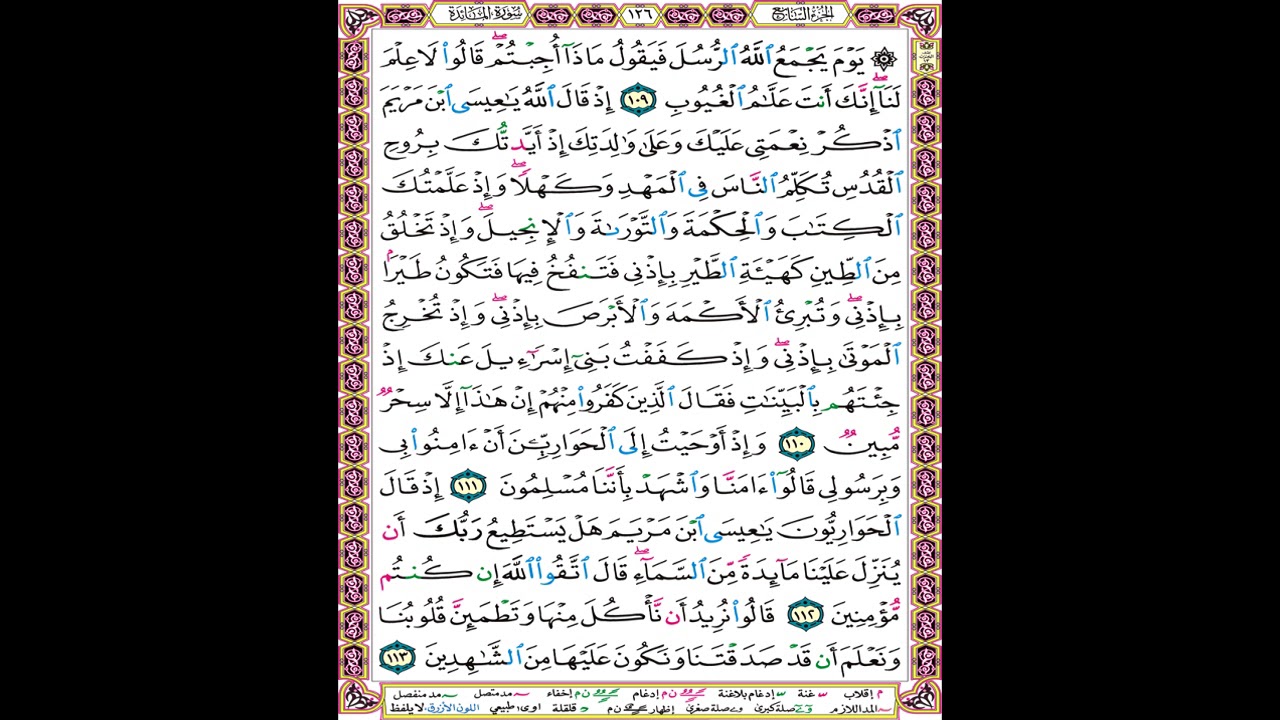 سورة المائدة ١٢٦ الجزء السابع
۞ يَوْمَ يَجْمَعُ ٱللَّهُ ٱلرُّسُلَ فَيَقُولُ مَاذَآ أُجِبْتُمْ ۖ قَالُوا۟ لَا عِلْمَ
لَنَآ ۖ إِنَّكَ أَنتَ عَلَّـٰمُ ٱلْغُيُوبِ ١٠٩ إِذْ قَالَ ٱللَّهُ يَـٰعِيسَى ٱبْنَ مَرْيَمَ
ٱذْكُرْ نِعْمَتِى عَلَيْكَ وَعَلَىٰ وَٰلِدَتِكَ إِذْ أَيَّدتُّكَ بِرُوحِ
ٱلْقُدُسِ تُكَلِّمُ ٱلنَّاسَ فِى ٱلْمَهْدِ وَكَهْلًا ۖ وَإِذْ عَلَّمْتُكَ
ٱلْكِتَـٰبَ وَٱلْحِكْمَةَ وَٱلتَّوْرَىٰةَ وَٱلْإِنجِيلَ ۖ وَإِذْ تَخْلُقُ
مِنَ ٱلطِّينِ كَهَيْـَٔةِ ٱلطَّيْرِ بِإِذْنِى فَتَنفُخُ فِيهَا فَتَكُونُ طَيْرًۢا
بِإِذْنِى ۖ وَتُبْرِئُ ٱلْأَكْمَهَ وَٱلْأَبْرَصَ بِإِذْنِى ۖ وَإِذْ تُخْرِجُ
ٱلْمَوْتَىٰ بِإِذْنِى ۖ وَإِذْ كَفَفْتُ بَنِىٓ إِسْرَٰٓءِيلَ عَنكَ إِذْ
جِئْتَهُم بِٱلْبَيِّنَـٰتِ فَقَالَ ٱلَّذِينَ كَفَرُوا۟ مِنْهُمْ إِنْ هَـٰذَآ إِلَّا سِحْرٌ
مُّبِينٌ ١١٠ وَإِذْ أَوْحَيْتُ إِلَى ٱلْحَوَارِيِّـۧنَ أَنْ ءَامِنُوا۟ بِى
وَبِرَسُولِى قَالُوٓا۟ ءَامَنَّا وَٱشْهَدْ بِأَنَّنَا مُسْلِمُونَ ١١١ إِذْ قَالَ
ٱلْحَوَارِيُّونَ يَـٰعِيسَى ٱبْنَ مَرْيَمَ هَلْ يَسْتَطِيعُ رَبُّكَ أَن
يُنَزِّلَ عَلَيْنَا مَآئِدَةً مِّنَ ٱلسَّمَآءِ ۖ قَالَ ٱتَّقُوا۟ ٱللَّهَ إِن كُنتُم
مُّؤْمِنِينَ ١١٢ قَالُوا۟ نُرِيدُ أَن نَّأْكُلَ مِنْهَا وَتَطْمَئِنَّ قُلُوبُنَا
وَنَعْلَمَ أَن قَدْ صَدَقْتَنَا وَنَكُونَ عَلَيْهَا مِنَ ٱلشَّـٰهِدِينَ ١١٣
م إقلاب غنة إدغام بلاغنة ن م إدغام ن م إخفاء مد متصل مد منفصل
المد اللازم صلة كبرى صلة صغرى إظهار ن م قلقلة اوى: طبيعي اللون الأزرق: لا يلفظ